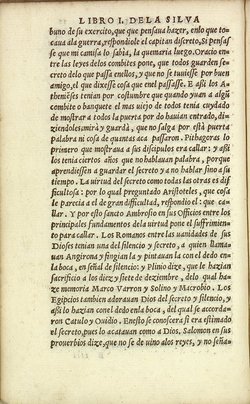 LIBRO I. DE LA SILVA
buno de su exercito, que que pensaua hazer, en lo que to-
caua a la guerra, respondiole el capitan discreto, Si pensas
se que mi camisa lo sabia, la quemaria luego. Oracio en-
tre las leyes delos combites pone, que todos guarden se-
creto delo que passa en ellos, y que no se tuuiesse por buen
amigo, el que dixesse cosa que enel passasse. E assi los A-
thenienses tenian por costumbre que quando yuan a algũ
combite o banquete el mas viejo de todos tenia cuydado
de mostrar a todos la puerta por do hauian entrado, di-
ziendoles: mirà y guardà, que no salga por esta puerta
palabra ni cosa de quantas aca passaren. Pithagoras lo
primero que mostraua a sus discipulos era callar: y assi
los tenia ciertos años que no hablauan palabra, porque
aprendiessen a guardar el secreto y a no hablar sino a su
tiempo. La virtud del secreto entre todas las otras es dif-
ficultosa: por lo qual preguntado Aristoteles, que cosa
le parecia a el de gran difficultad, respondio el: que ca-
llar. Y por esto sancto Ambrosio en sus Officios entre los
principales fundamentos dela virtud pone el suffrimien-
to para callar. Los Romanos entre las vanidades de sus
Dioses tenian vna del silencio y secreto, a quien llama-
uan Angirona y fingian la y pintauan la con el dedo en-
la boca, en señal de silencio: y Plinio dize, que le hazian
sacrificio a los diez y siete de dezimbre, delo qual ha-
ze memoria Marco Varron y Solino y Macrobio. Los
Egipcios tambien adorauan Dios del secreto y silencio, y
assi lo hazian con el dedo enla boca, del qual se acorda-
ron Catulo y Ouidio. Enesto se conoscera si era estimado
el secreto, pues lo acatauan como a Dios. Salomon en sus
prouerbios dize, que no se de vino alos reyes, y no seña-